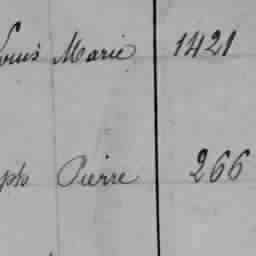 Louis Marie 1421
ph Pierre 266